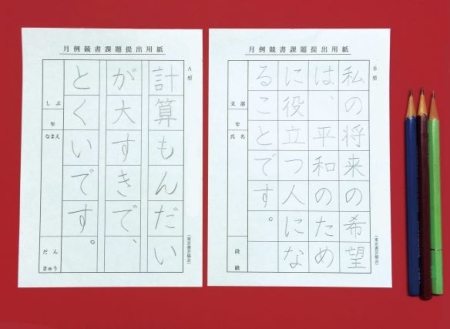 月例競書課題提出用紙
計算もんだい
が大すきで、
とくいです。
しぶ
なまえ
だん
きゅう
月例競書課題提出用紙
私の将来の希望
は、平和のため
に役立つ人にな
ることです。
氏名
段
級